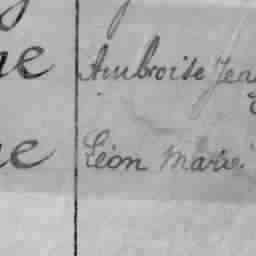 ne Ambroise Jea
ne Léon Marie